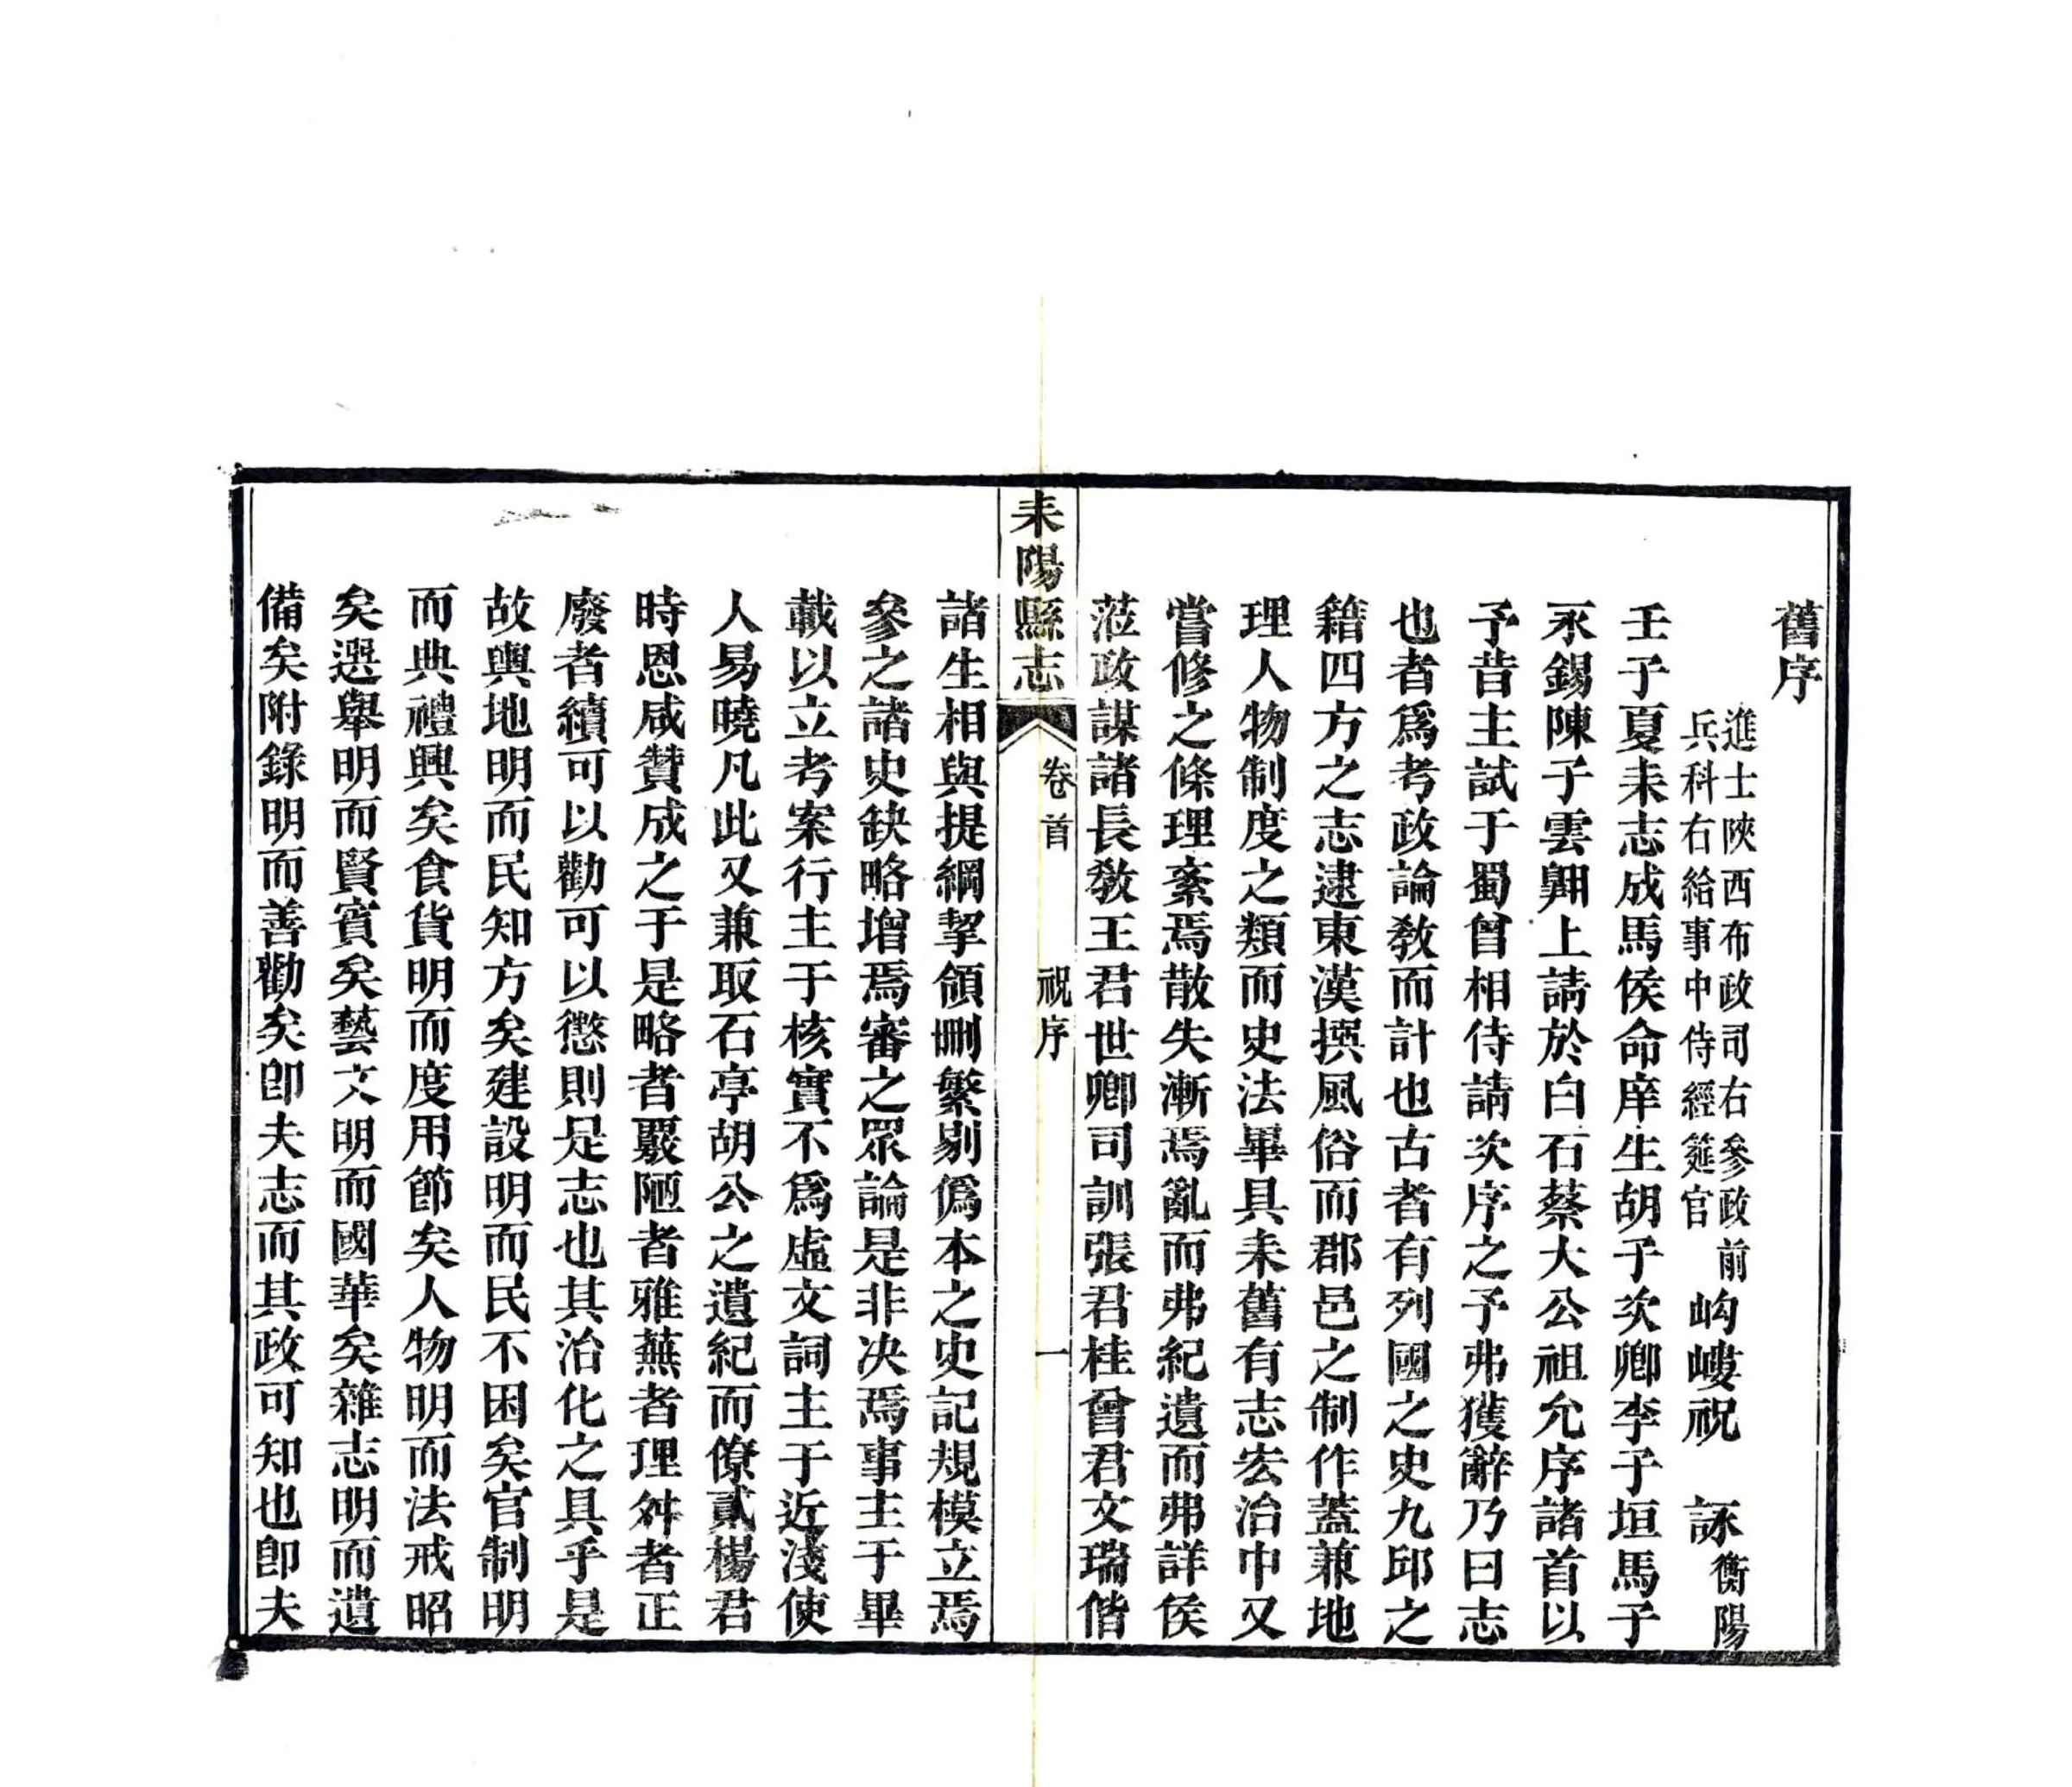 舊序
進士陝西布政司右參政前
兵科右給事中侍經筵官
岣嶁祝 詠衡陽
壬子夏耒志成馬侯命庠生胡子次卿李子垣馬子
永錫陳子雲翺上請於白石蔡大公祖允序諸首以
予昔主試于蜀曾相侍請次序之予弗獲辭乃曰志
也者爲考政論教而計也古者有列國之史九邱之
籍四方之志逮東漢撰風俗而郡邑之制作蓋兼地
理人物制度之類而史法畢具耒舊有志宏治中又
嘗修之條理紊焉散失漸焉亂而弗紀遺而弗詳侯
蒞政謀諸長敎王君世卿司訓張君桂曾君文瑞偕
耒陽縣志
卷首
祝序
一
諸生相與提綱挈領刪繁剔僞本之史記規模立焉
參之諸史缺略增焉審之眾論是非決焉事主于畢
載以立考案行主于核實不爲虛文詞主于近淺使
人易曉凡此又兼取石亭胡公之遺紀而僚貳楊君
時恩咸贊成之于是略者覈陋者雅蕪者理舛者正
廢者續可以勸可以懲則是志也其治化之具乎是
故輿地明而民知方矣建設明而民不困矣官制明
而典禮興矣食貨明而度用節矣人物明而法戒昭
矣選舉明而賢賓矣藝文明而國華矣雜志明而遺
備矣附錄明而善勸矣卽夫志而其政可知也卽夫